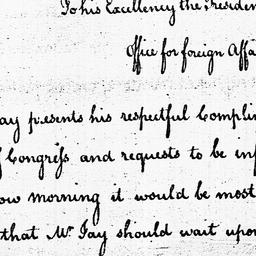 To his Excellency the Presiden
Office for foreign Affa
ay presents his respectful Complim
f Congreſs and requests to be inf
ow morning it would be most
that Mr. Jay should wait upon